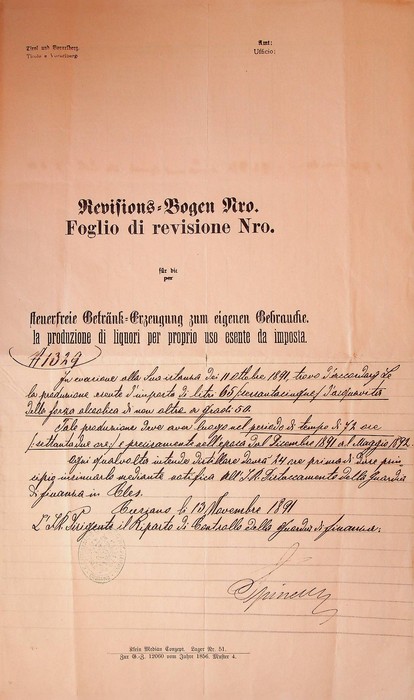 Tirol und Vorarlberg.
Tirolo e Vorarlberg.
Amt:
Ufficio:
Revisions-Bogen Nro.
Foglio di revisione Nro.
für die
per
steuerfreie Getränk-Erzeugung zum eigenen Gebrauche.
la produzione di liquori per proprio uso esente da imposta.
1329
In evasione alla Sua istanza dei 11 Ottobre 1891, trovo d'accordarLe
la produzione esente d'imposta di litri 65 (sessantacinque) d'acquavite
della forza alcoolica di non oltre a gradi 50.
Tale produzione deve aver luogo nel periodo di tempo di 72 ore
(settantadue ore) e precisamente nell'epoca dal 1 Dicembre 1891 al 1 Maggio 1892.
Ogni qualvolta intende distillare dovrà 24 ore prima di dare prin-
cipio insinuarlo mediante notifica all' I. R. Distaccamento della Guardia
di finanza in Cles.
li 13 Novembre 1891
L' I. R. Dirigente il Riparto di Controllo della Guardia di finanza:
Klein Median Concept. Lager Nr. 51.
Zur G.-Z. 12060 vom Jahre 1856. Muster 4.